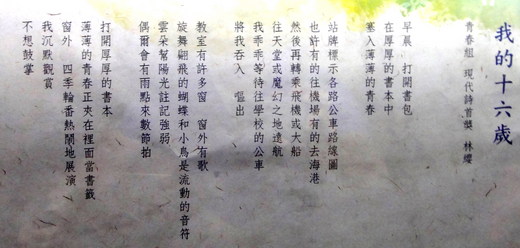 我的十六歲
青春組 現代詩首獎 林纓
早晨 打開書包
在厚厚的書本中
塞入薄薄的青春
站牌標示各路公車路線圖
也許有的往機場有的去海港
然後再轉乘飛機或大船
往天堂或魔幻之地遠航
我乖乖等待往學校的公車
將我吞入 嘔出
教室有許多窗 窗外有歌
旋舞翩飛的蝴蝶和小鳥是流動的音符
雲朵幫陽光註記強弱
偶爾會有雨點來數節拍
打開厚厚的書本
薄薄的青春正夾在裡面當書籤
窗外 四季輪番熱鬧地展演
我沉默觀賞
不想鼓掌